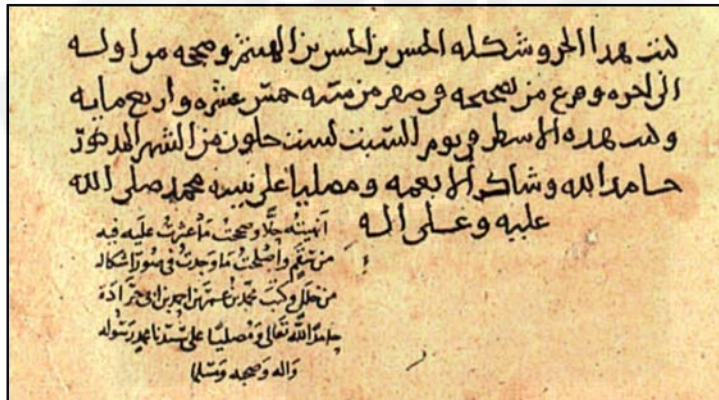 كتب هذا الجز وشكله الحسن بن الحسن بن الهيثم وصححه من اوله
الى اخره وفرغ من تصحيحه في صفر من سنه خمس عشره واربع مايه
وكتب هذه الاسطر في يوم السبت لست خلون من الشهر المذكور
حامدا لله وشاكرا لانعمه ومصليا على نبيه محمد صلى الله
عليه وعلى اله
انهيته حلا وصححت ما عثرت عليه فيه
من سقم واصلحت ما وجدت في صور اشكاله
من خلل وكتب محمد بن عمر بن احمد بن ابي جرادة
حامدا لله تعالى ومصليا على سيدنا محمد رسوله
واله وصحبه ومسلما